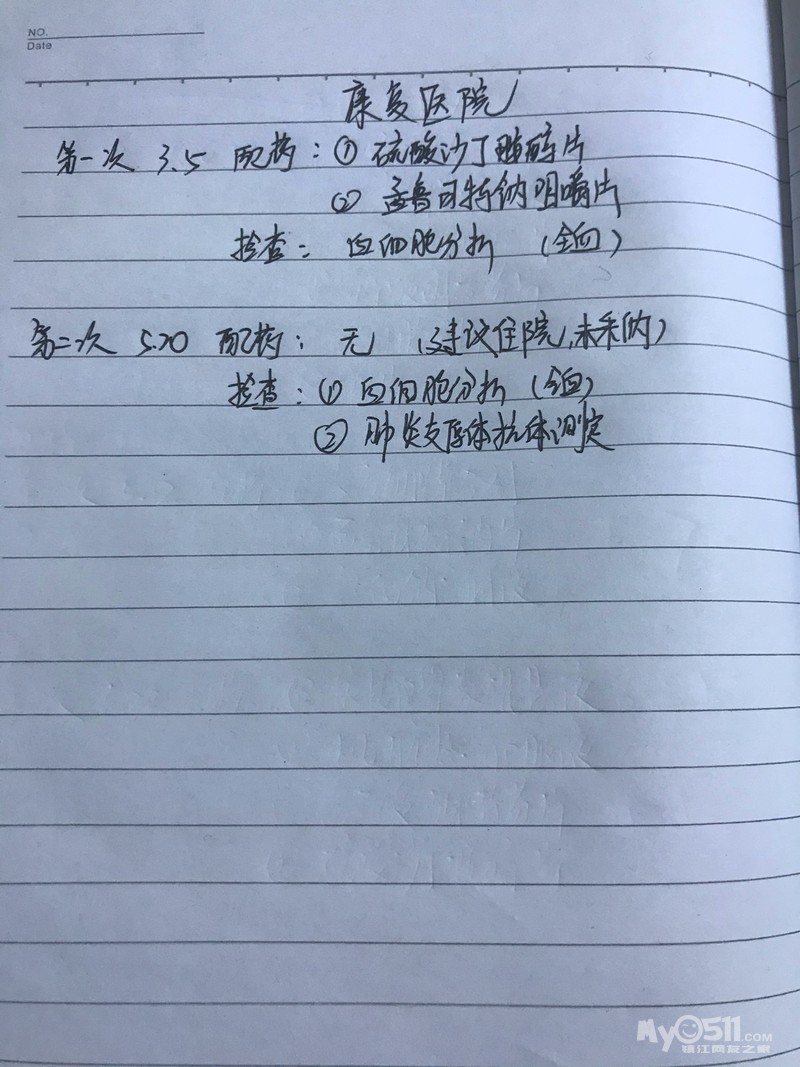 NO.
Date
康复医院
第一次 3.5 配药：① 硫酸沙丁胺醇片
② 孟鲁司特钠咀嚼片
检查： 血细胞分析 (全血)
第二次 5.20 配药： 无 (建议住院,未采纳)
检查：① 血细胞分析 (全血)
② 肺炎支原体抗体测定
My0511.COM
镇江网友之家